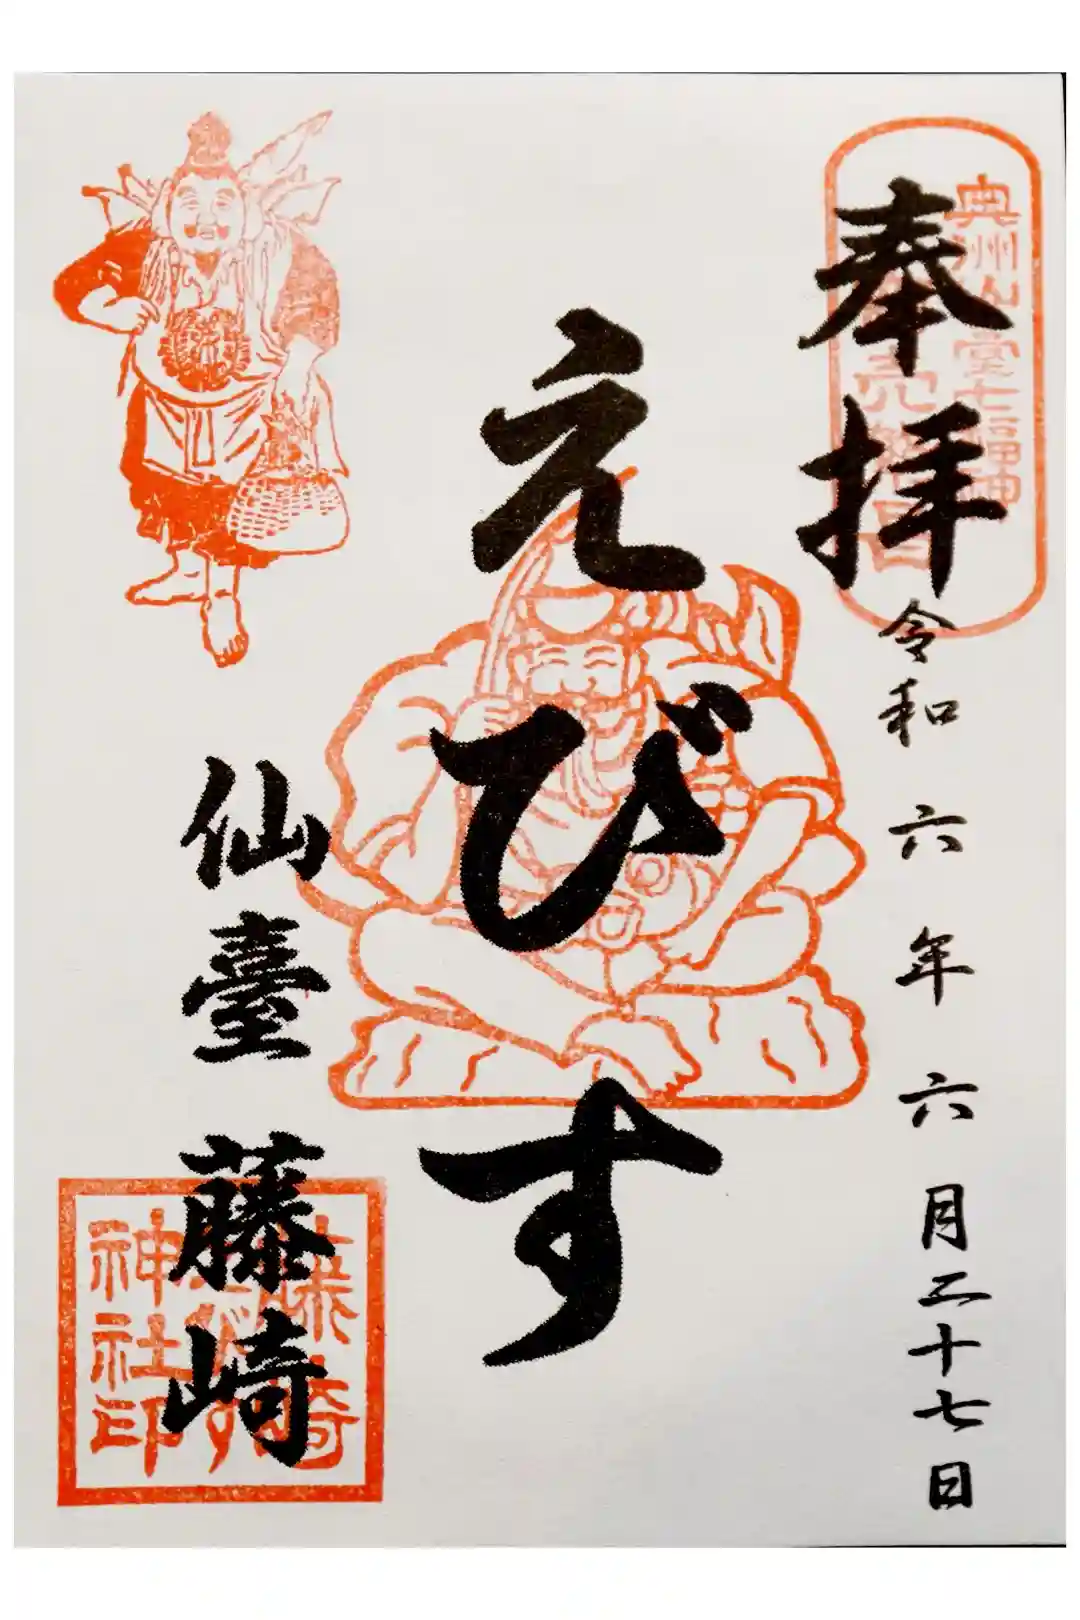 奉拝
令和六年六月二十七日
えびす
仙臺
藤崎
奥州仙臺七福神
神社印